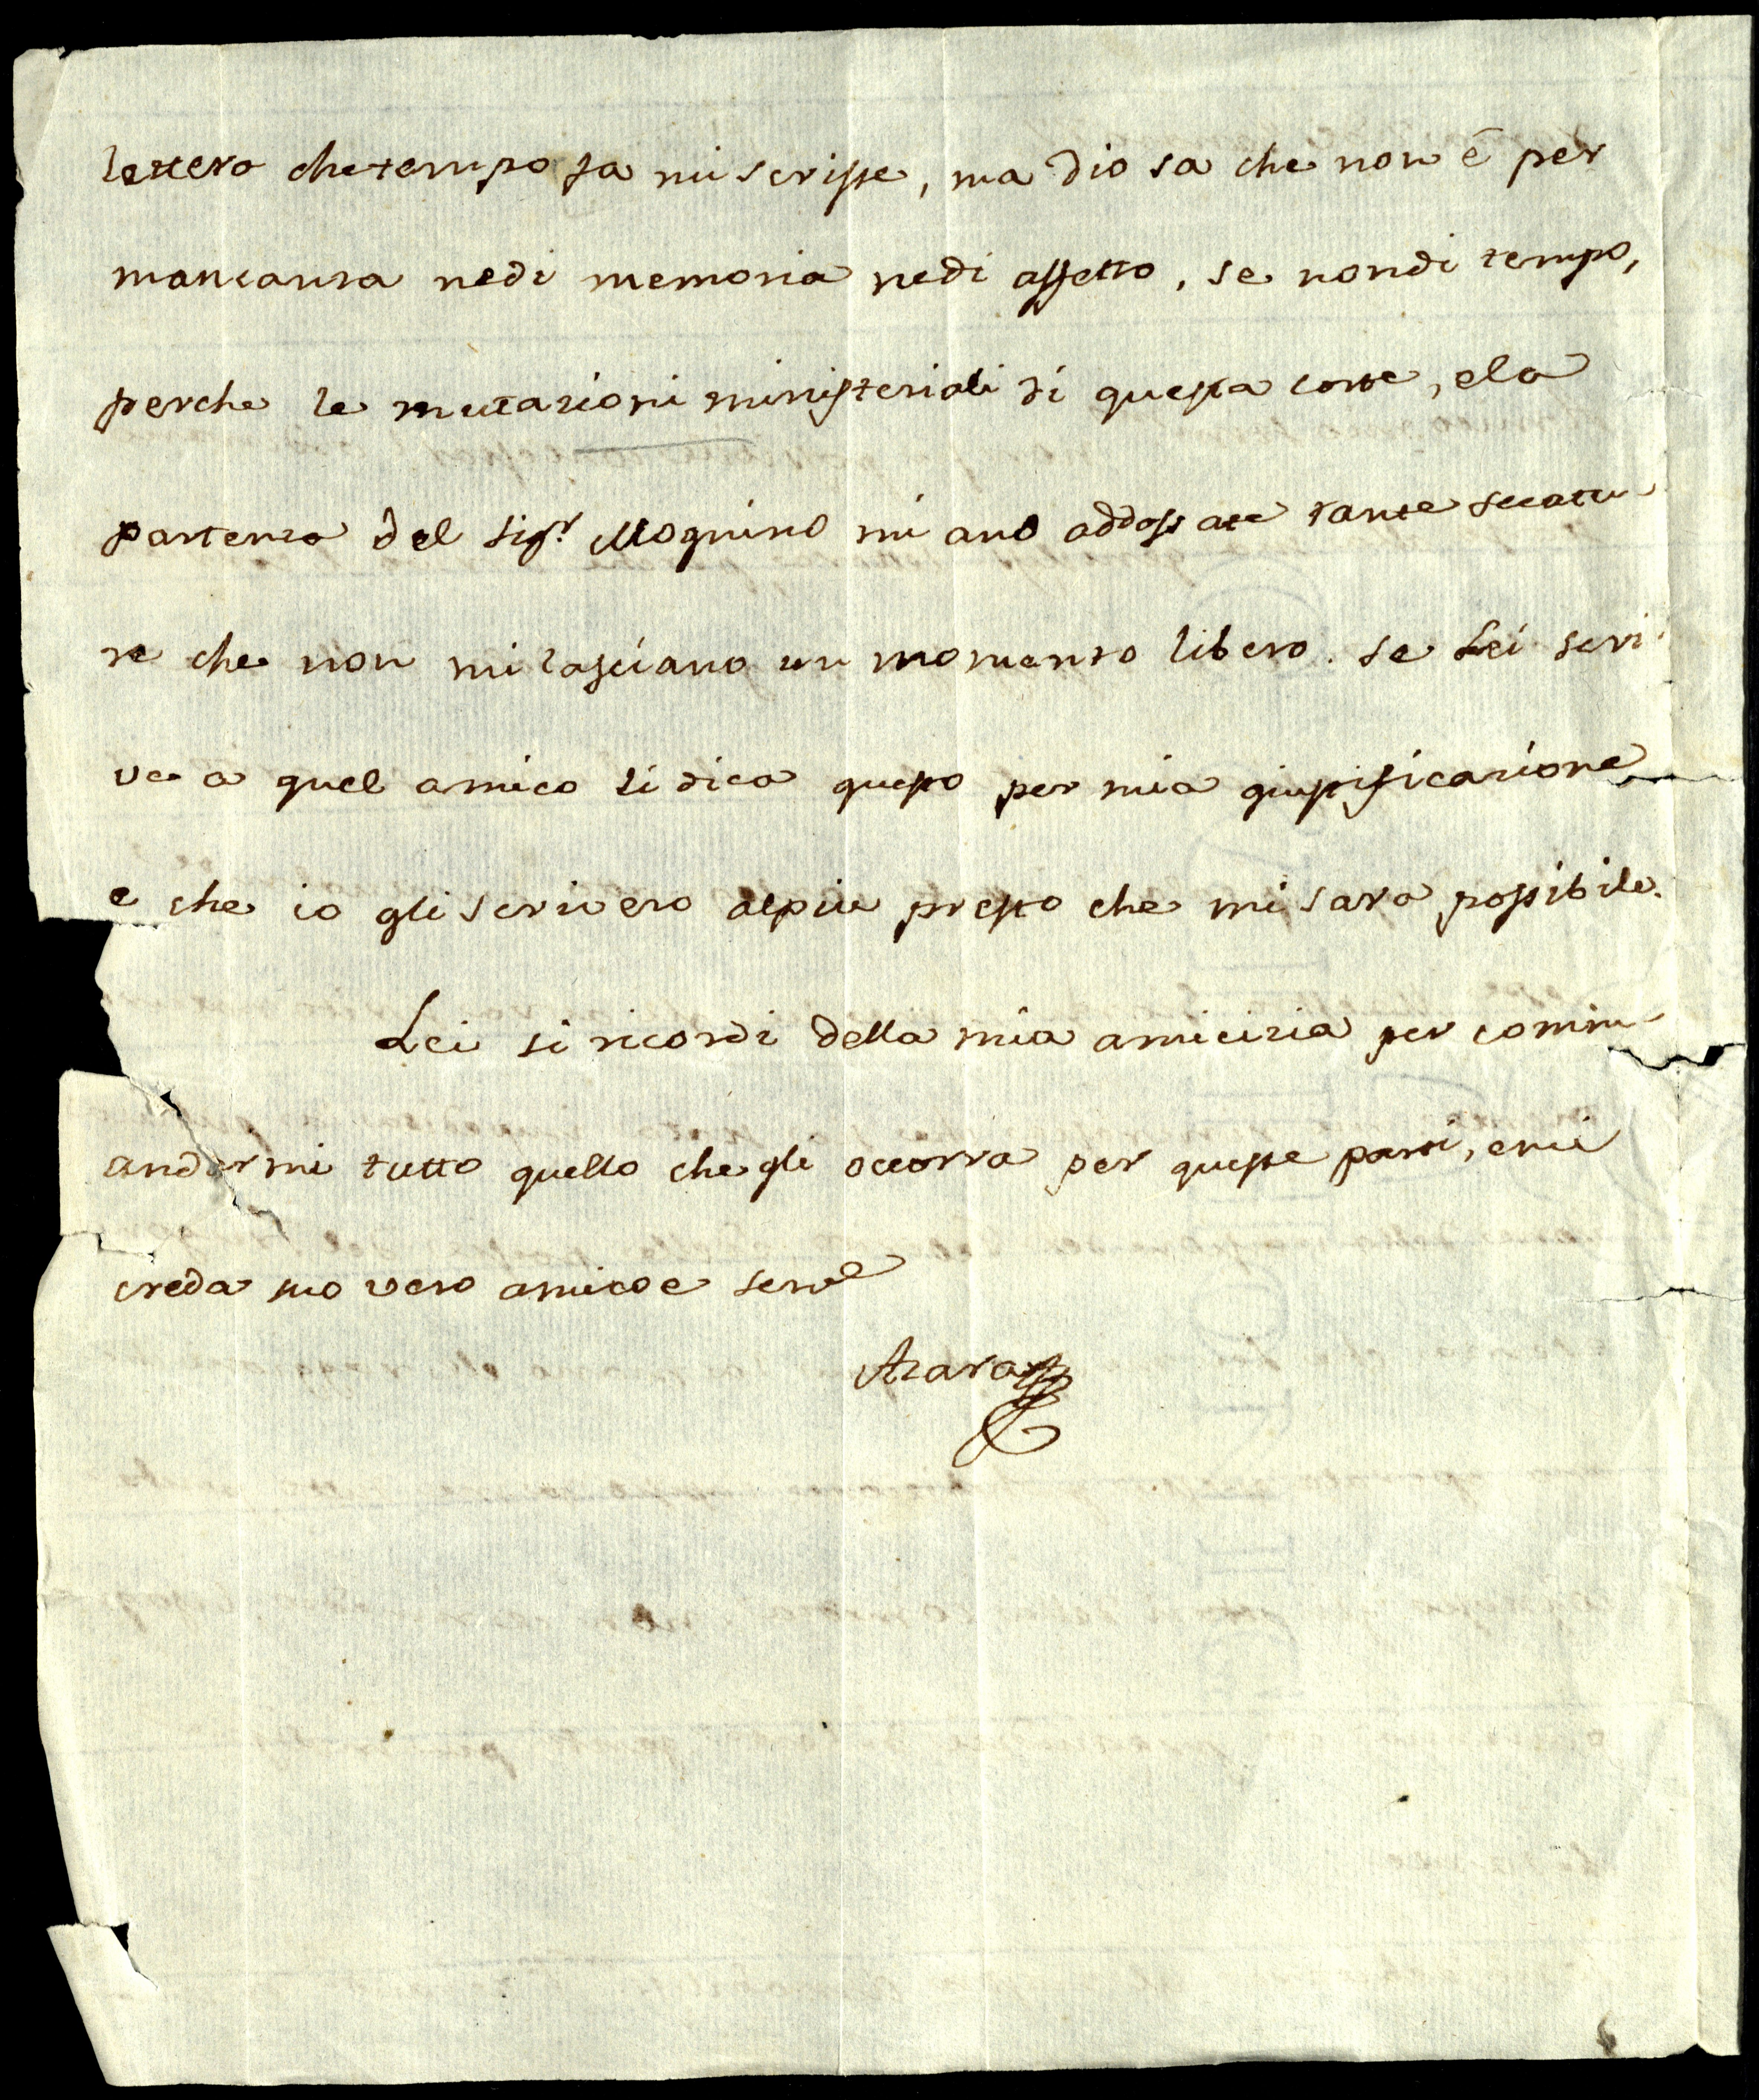 lettera che tempo fa mi scrisse, ma Dio sa che non è per
mancanza nedi memoria nedi affetto, se nondi tempo,
perche le mutazioni ministeriali di questa corte, ela
partenza del Sigr. Mognino mi ano addossate tante seccatu
re che non mi lasciano un momento libero. Se Lei scri
ve a quel amico li dica questo per mia giustificazione
e che io gli scrivero alpiu presto che mi sara possibile.
Lei si ricordi della mia amicizia per comm
andarmi tutto quello che gli occorra per queste parti, emi
creda suo vero amico e serve
Azara